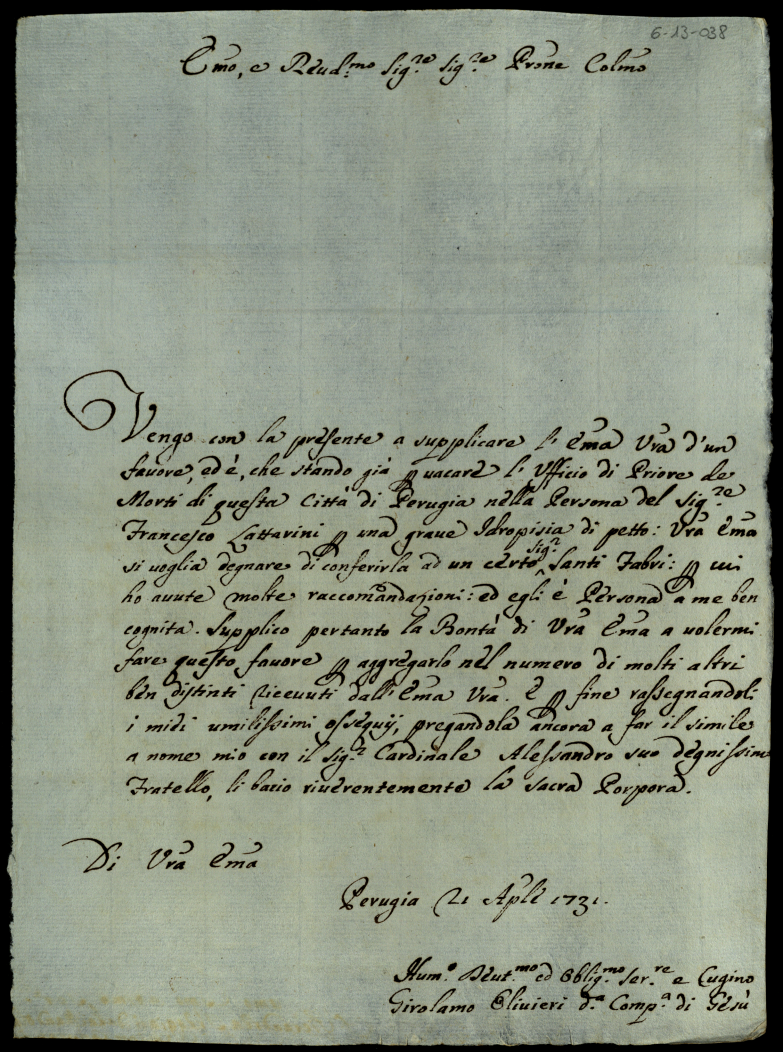 6-13-038
Emo, e Reud.mo Sig.re Sig.re Prone Colmo
Vengo con la presente a supplicare l'Ema Vra d'un
favore, ed è, che stando già p vacare l'Ufficio di Priore de
Morti di questa Città di Perugia nella Persona del Sig.re
Francesco Lattarini p una grave Idropisia di petto: Vra Ema
si voglia degnare di conferirla ad un certo Sig.r Santi Fabri: p cui
ho avute molte raccomandazioni: ed egli è Persona a me ben
cognita. Supplico pertanto la Bontà di Vra Ema a volermi
fare questo favore p aggregarlo nel numero di molti altri
ben distinti ricevuti dall'Ema Vra. E p fine rassegnandoli
i miei umilissimi ossequij, pregandola ancora a far il simile
a nome mio con il Sig.r Cardinale Alessandro suo degnissimo
Fratello, li bacio riverentemente la Sacra Porpora.
Di Vra Ema
Perugia 21 Aple 1731.
Hum.o Deut.mo ed Oblig.mo Ser.re e Cugino
Girolamo Olivieri d.a Comp.a di Gesù